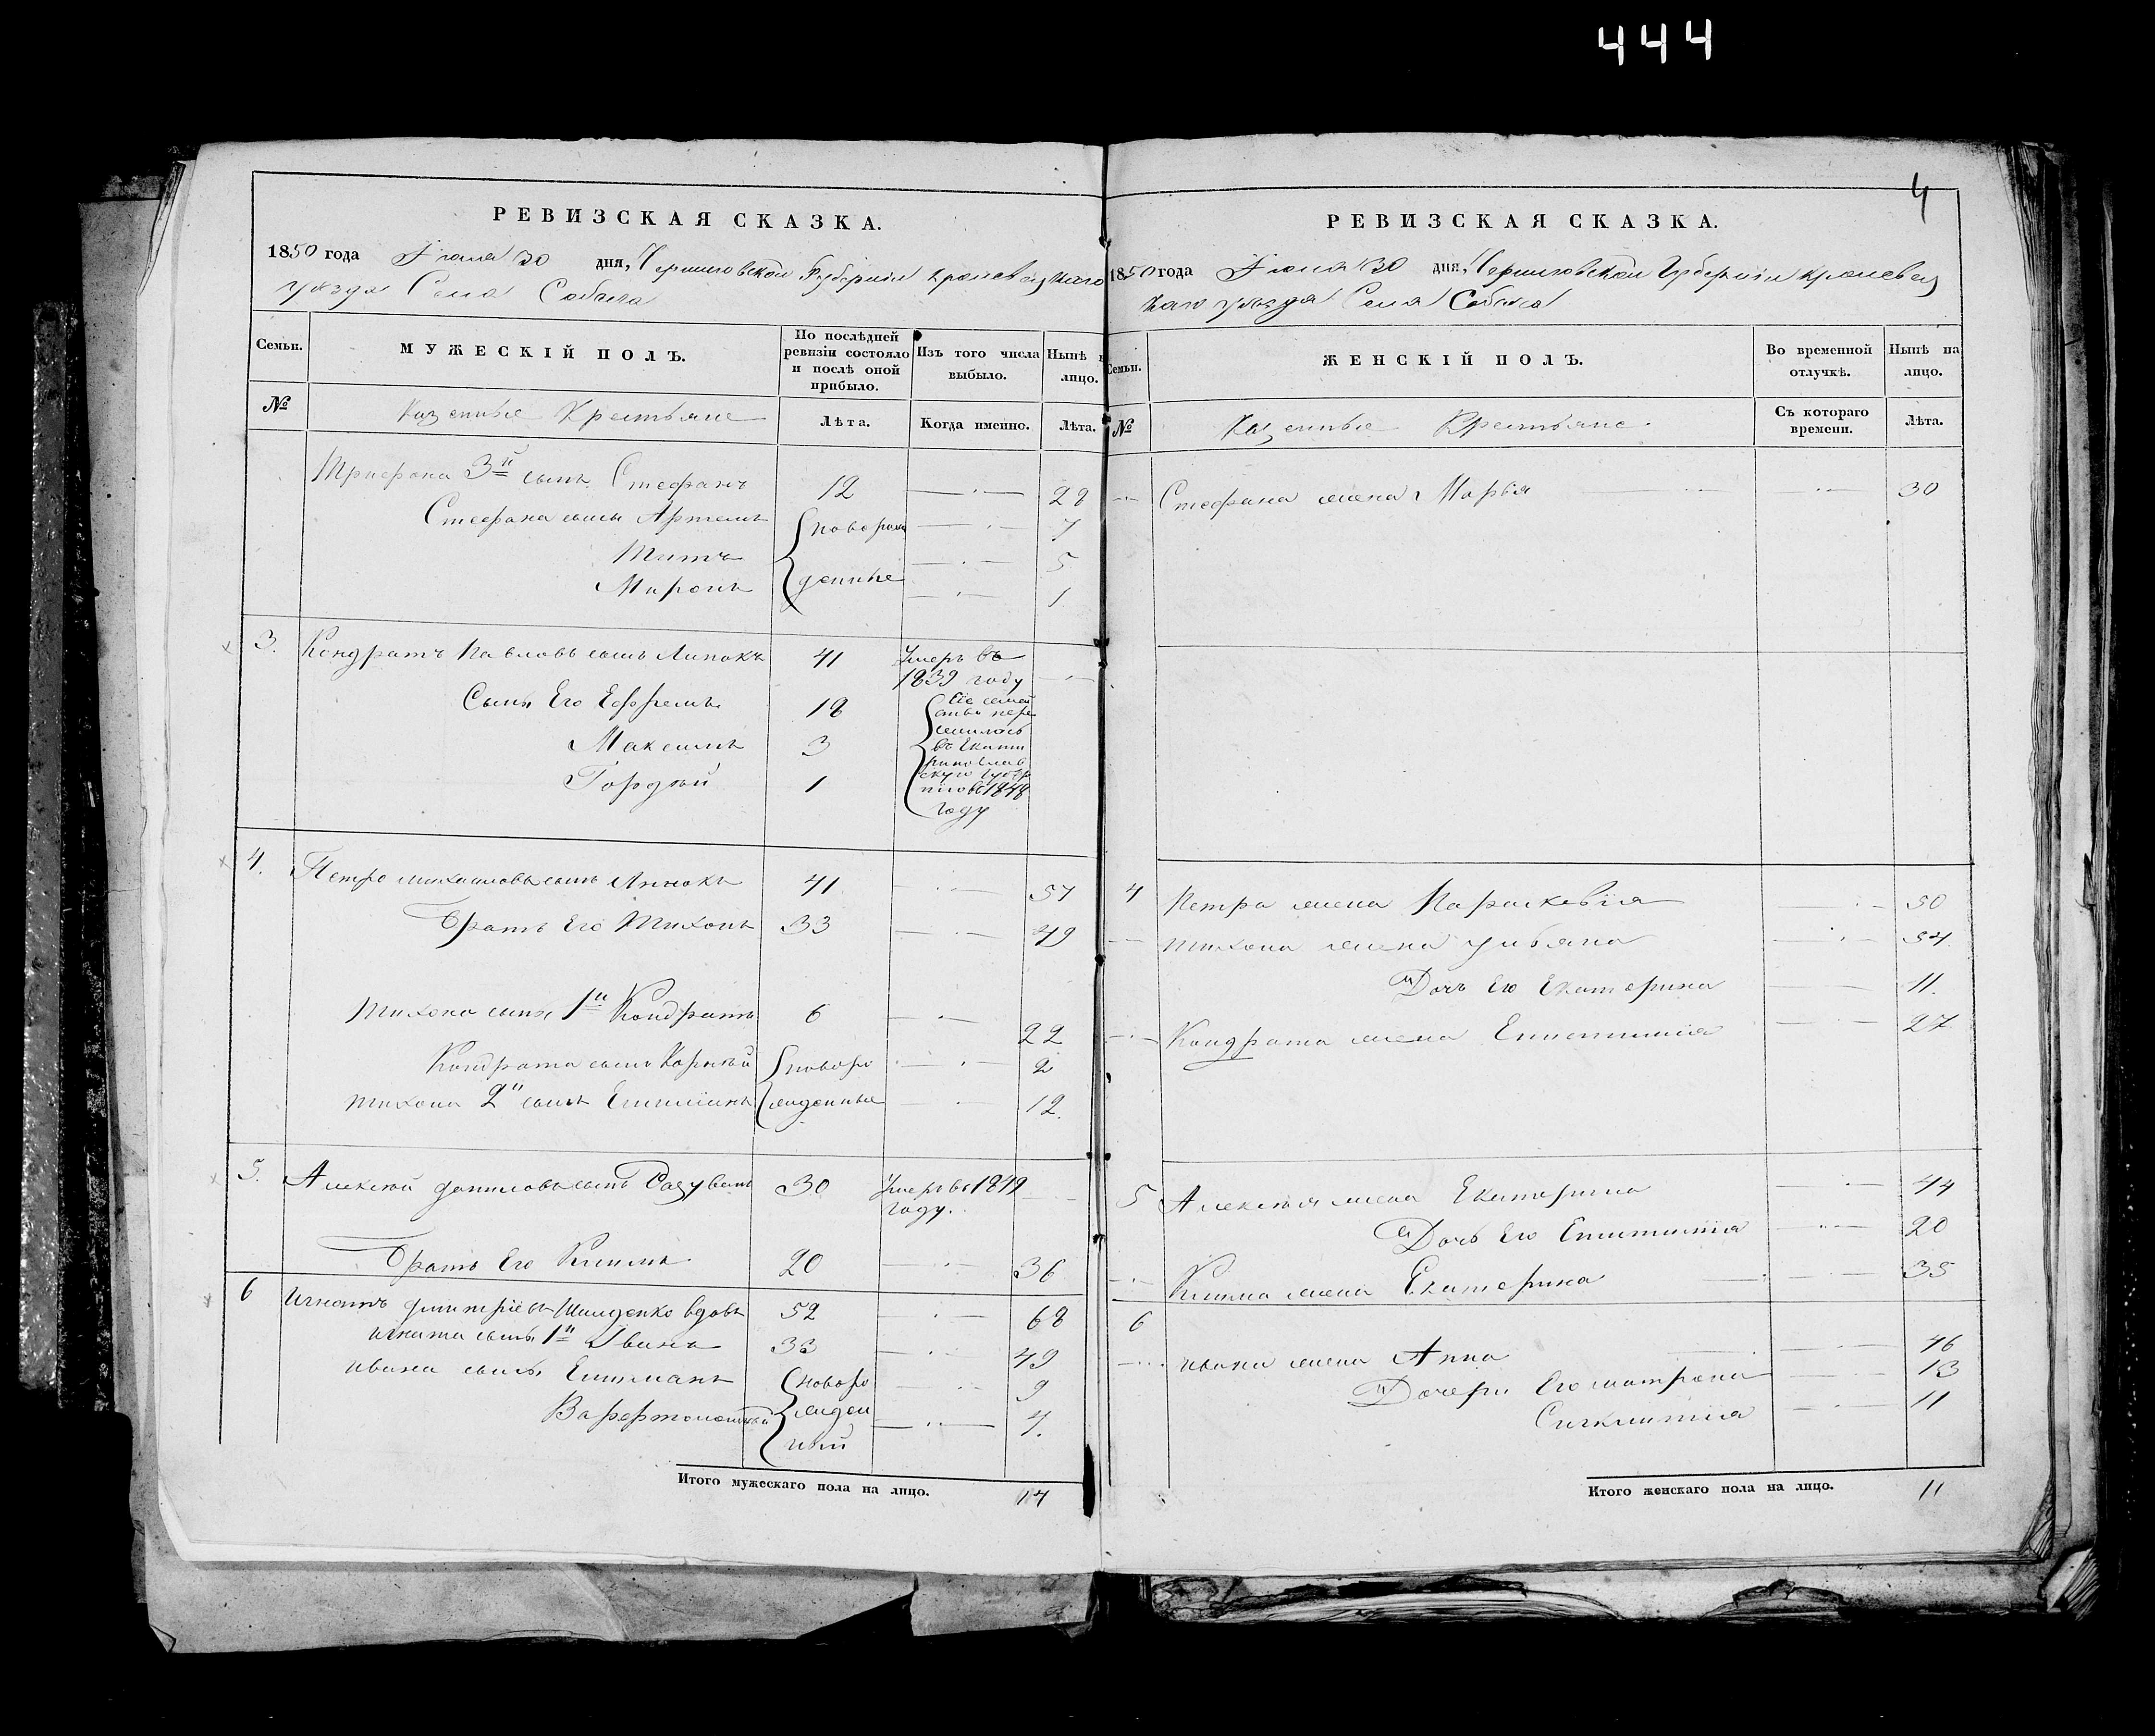 444
РЕВИЗСКАЯ СКАЗКА.
1850 года Іюня 30 дня, Черниговской Губерніи Кролевецкаго
уѣзда Села Собича
Семьи.
МУЖЕСКІЙ ПОЛЪ.
По послѣдней
ревизіи состояло
и послѣ оной
прибыло.
Изъ того числа
выбыло.
Нынѣ н
лицо.
№
Казенные Крестьяне
Лѣта.
Когда именно.
Лѣта.
Трифона 3й сынъ Стефанъ 12 28
Стефана сыны Артемъ новорож 7
Титъ 5
Миронъ денные 1
3. Кондратъ Павловъ сынъ Линокъ 41 Умеръ въ
1839 году
Сыны Его Ефремъ 18 Сіе семей
ство пере
селилось
Максимъ 3 въ Екате
ринослав
скую Губер
Гордѣй 1 нію въ 1848
году
4. Петро Михайловъ сынъ Линокъ 41 57
Братъ Его Тихонъ 33 49
Тихона сынъ 1й Кондратъ 6 22
Кондрата сынъ Корнѣй новоро 2
Тихона 2й сынъ Емиліянъ жденные 12.
5. Алексѣй Даниловъ сынъ 30 Умеръ въ 1849
году.
Братъ Его Климъ 20 36
6 Игнатъ Дмитріевъ Шмиденко вдовъ 52 68
Игната сынъ 1й Иванъ 33 49
Ивана сыны Емилианъ новоро 9
Варфоломей жден 4.
ный
Итого мужескаго пола на лицо. 17
4
РЕВИЗСКАЯ СКАЗКА.
1850 года Іюня 30 дня, Черниговской Губерніи Кролевец
каго уѣзда Села Собича
Семьи.
ЖЕНСКІЙ ПОЛЪ.
Во временной
отлучкѣ.
Нынѣ на
лицо.
№
Казенные Крестьяне.
Съ котораго
времени.
Лѣта.
Стефана жена Марья 30
4 Петра жена Параскевія 50
Тихона жена Ульяна 54.
Дочь Его Екатерина 11.
Кондрата жена Епистимія 27
5 Алексѣя жена Екатерина 44
Дочь Его Епистимія 20
Клима жена Екатерина 35
6
Ивана жена Анна 46
Дочери Его Матрона 13
11
Итого женскаго пола на лицо. 11